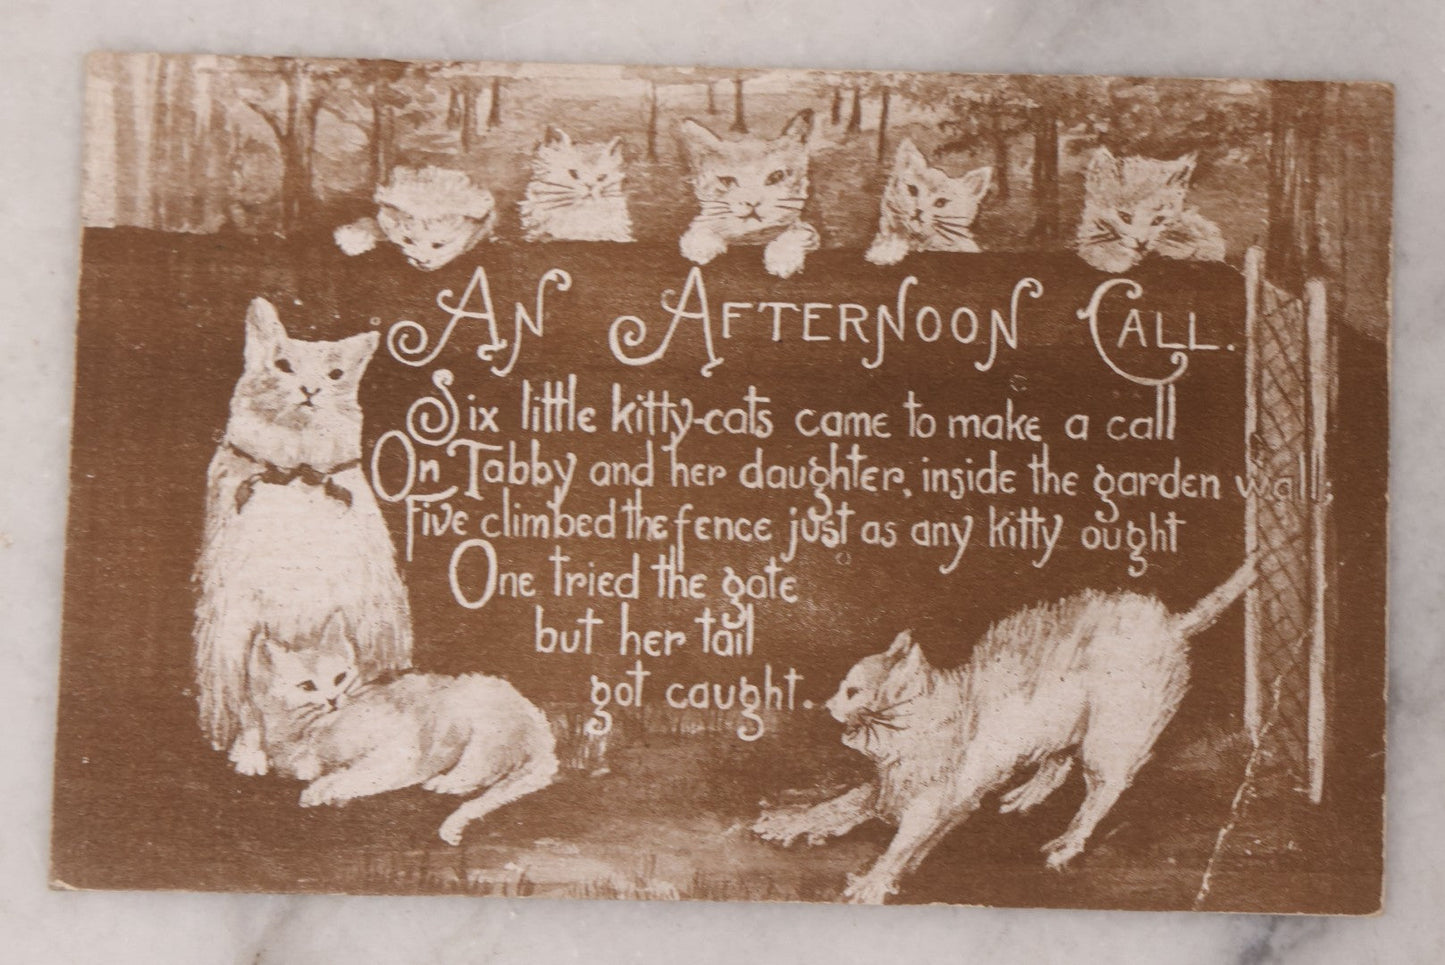 An Afternoon Call.
Six little kitty-cats came to make a call
On Tabby and her daughter, inside the garden wall;
Five climbed the fence just as any kitty ought
One tried the gate
but her tail
got caught.